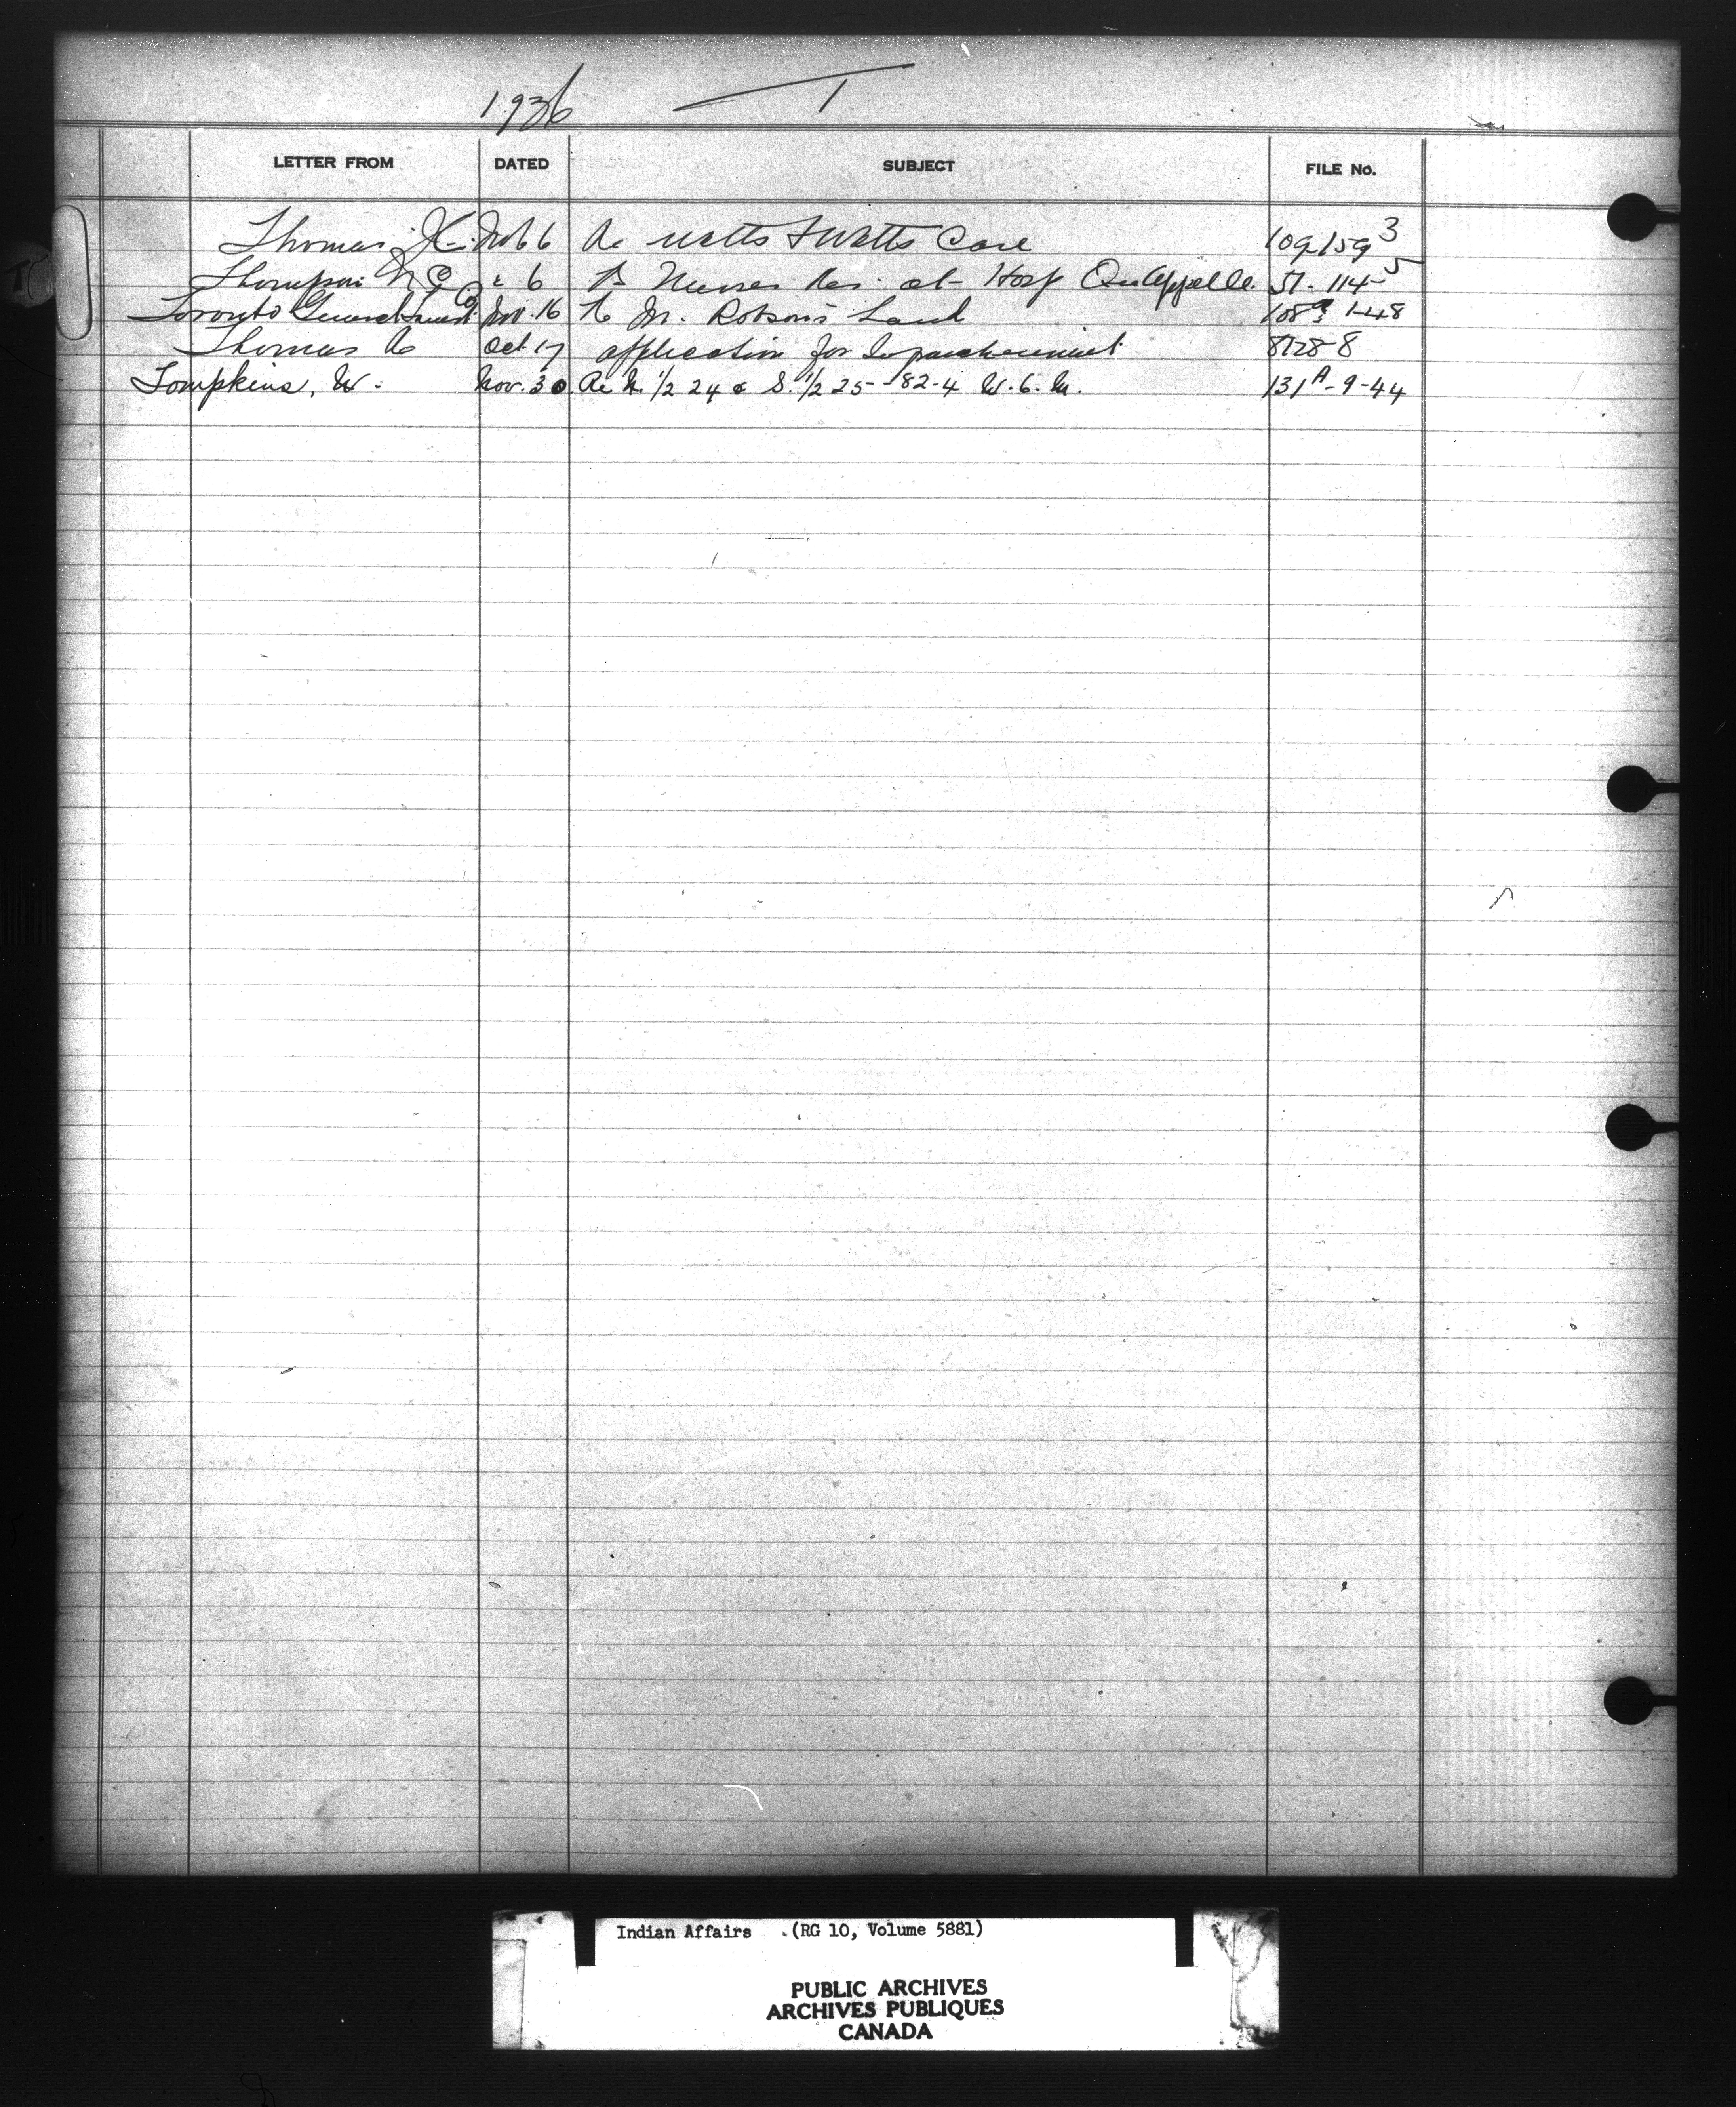 1936 T
LETTER FROM DATED SUBJECT FILE No.
Thomas J.C. Nov 6 Re Watts & Watts Case 109-159 3
Thompson " 6 Re Nurses Res. at Hosp Qu'Appelle. 51-114-5
Toronto General Trusts Co Nov. 16 Re Mr. Robson's Land 1-48
Thomas A Oct 17 application for 8128-8
Tompkins, W. Nov. 30 Re N. 1/2 24 & S. 1/2 25-82-4 W.6.M. 131A-9-44
Indian Affairs (RG 10, Volume 5881)
PUBLIC ARCHIVES
ARCHIVES PUBLIQUES
CANADA